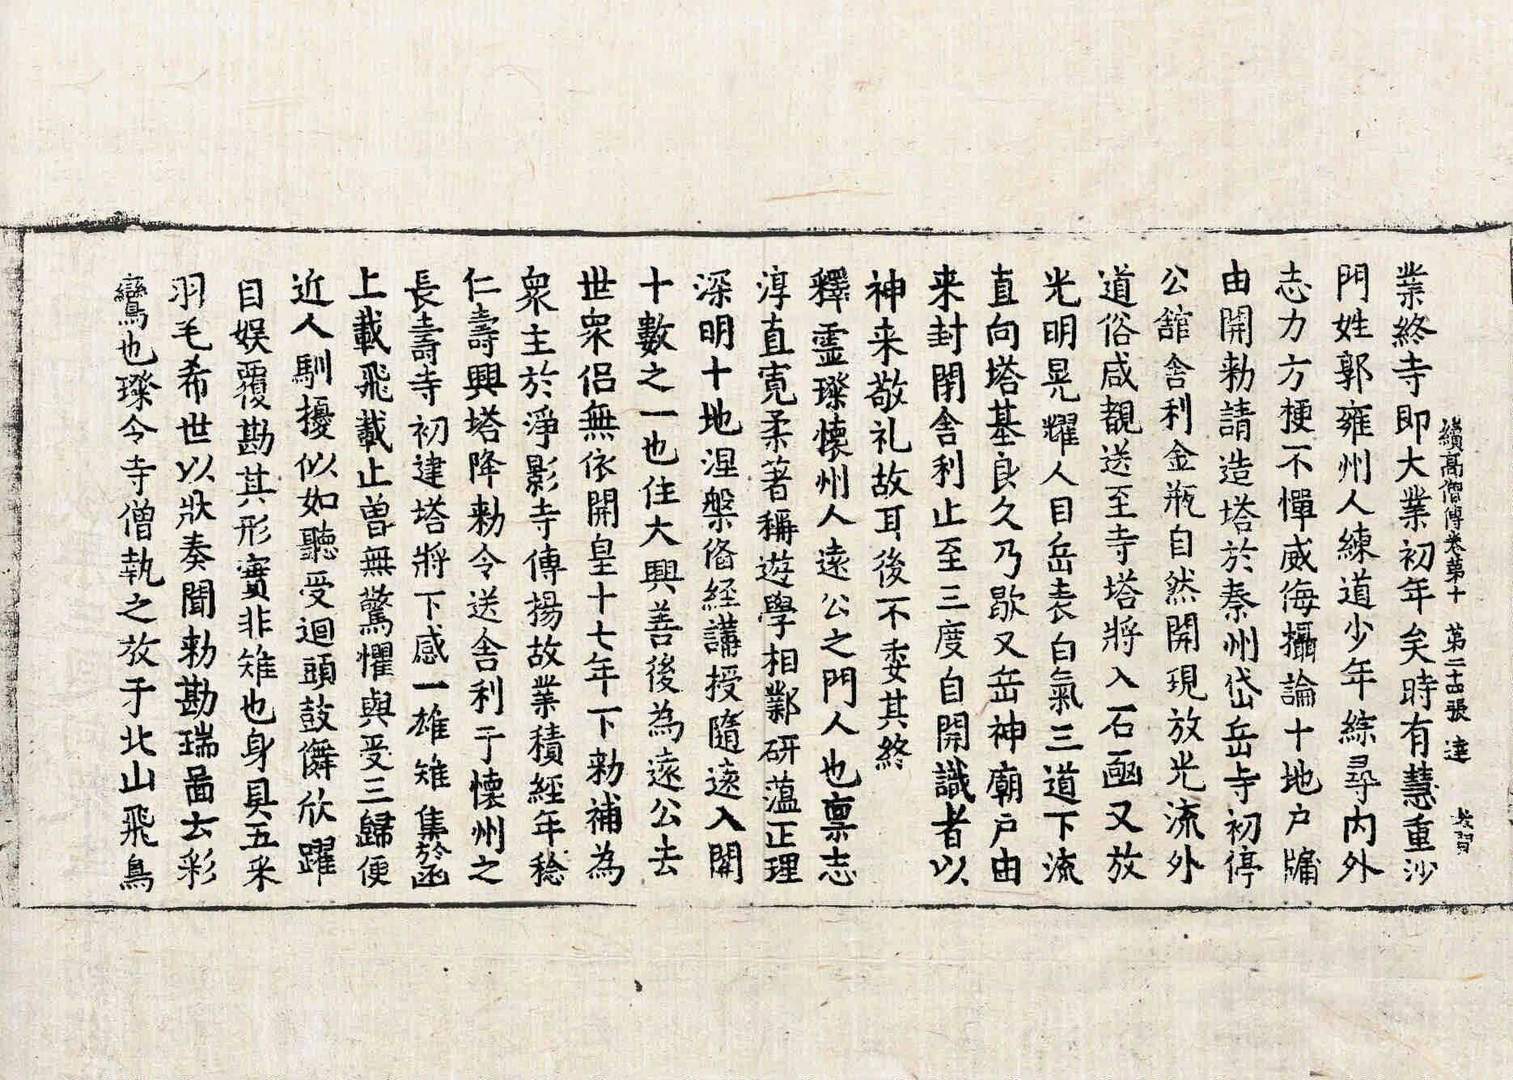 續高僧傳卷第十 第二十四張 達
業終寺即大業初年矣時有慧重沙
門姓郭雍州人練道少年綜尋內外
志力方梗不憚威侮攝論十地戶牖
由開勅請造塔於秦州岱岳寺初停
公舘舍利金瓶自然開現放光流外
道俗咸覩送至寺塔將入石函又放
光明晃耀人目岳表白氣三道下流
直向塔基良久乃歇又岳神廟戶由
来封閉舍利止至三度自開識者以
神来敬礼故耳後不委其終
釋靈璨懷州人遠公之門人也禀志
淳直寛柔著稱遊學相鄴研蘊正理
深明十地涅槃俻經講授隨遠入關
十數之一也住大興善後為遠公去
世衆侶無依開皇十七年下勑補為
衆主於淨影寺傳揚故業積經年稔
仁壽興塔降勅令送舍利于懷州之
長壽寺初建塔將下感一雄雉集於函
上載飛載止曽無驚懼與受三歸便
近人馴擾似如聽受迴頭鼓儛欣躍
自娛覆勘其形實非雉也身具五采
羽毛希世以狀奏聞勅勘瑞啚云彩
鸞也璨令寺僧執之放于北山飛鳥